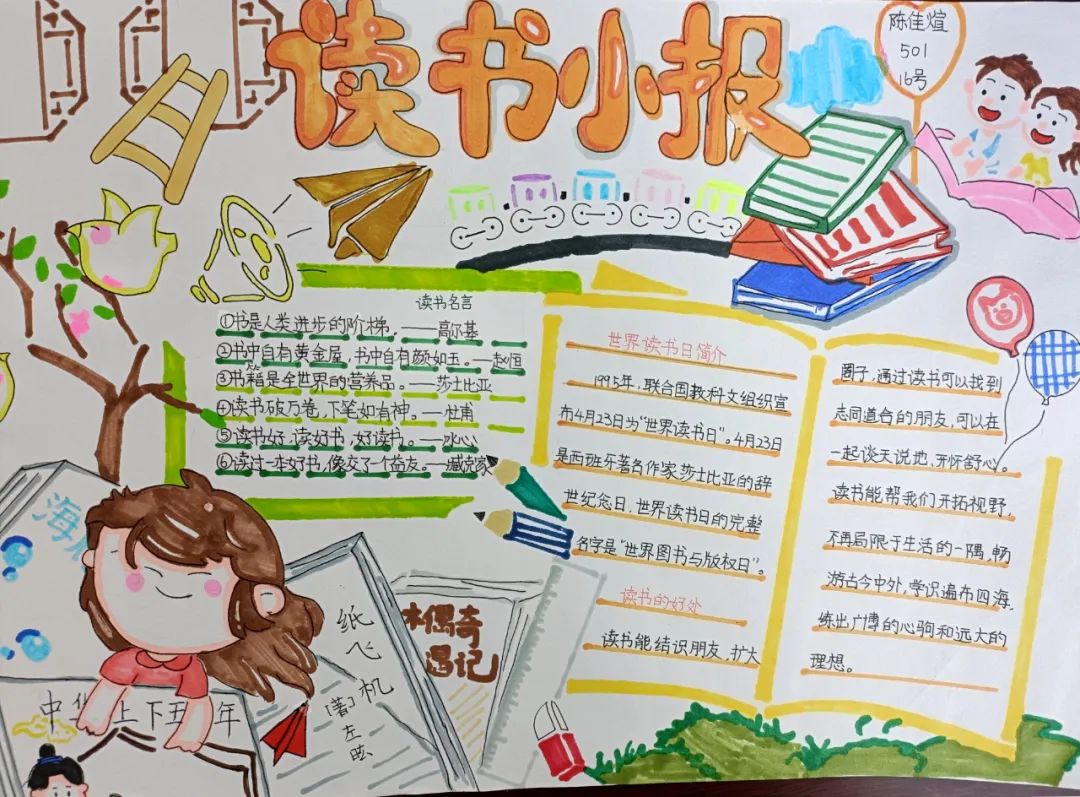 读书小报
陈佳煊
501
16号
读书名言
①书是人类进步的阶梯。——高尔基
②书中自有黄金屋,书中自有颜如玉。—赵恒
③书籍是全世界的营养品。——莎士比亚
④读书破万卷,下笔如有神。—杜甫
⑤读书好,读好书,好读书。—冰心
⑥读过一本好书,像交了一个益友。—臧克家
世界读书日简介
1995年,联合国教科文组织宣
布4月23日为“世界读书日”。4月23日
是西班牙著名作家莎士比亚的辞
世纪念日,世界读书日的完整
名字是“世界图书与版权日”。
读书的好处
读书能结识朋友,扩大
圈子,通过读书可以找到
志同道合的朋友,可以在
一起谈天说地,开怀舒心。
读书能帮我们开拓视野,
不再局限于生活的一隅,畅
游古今中外,学识遍布四海,
练出广博的心胸和远大的
理想。
海
纸飞机
[著]左昡
木偶奇
遇记
中华上下五千年